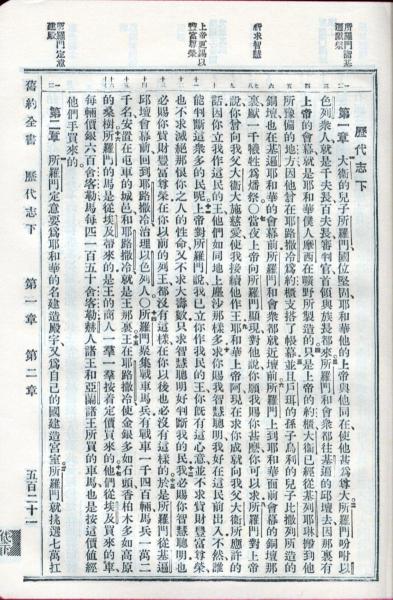 所羅門獻基
遍獻祭
祈求智慧
上帝更賜以
豐富尊榮
所羅門定意
建殿
歷代志下
第一章 大衛的兒子所羅門國位堅固耶和華他的上帝與他同在使他甚爲尊大所羅門吩咐以
色列衆人就是千夫長百夫長審判官首領與族長都來所羅門和會衆都往基遍的邱壇去因那裏有
上帝的會幕就是耶和華僕人摩西在曠野所製造的只是上帝的約櫃大衛已經從基列耶琳搬到他
所豫備的地方因他曾在耶路撒冷爲約櫃支搭了帳幕並且戶珥的孫子烏利的兒子比撒列所造的
銅壇也在基遍耶和華的會幕前所羅門和會衆都就近壇前所羅門上到耶和華面前會幕的銅壇那
裏獻一千犧牲爲燔祭○當夜上帝向所羅門顯現對他說你願我賜你甚麼你可以求所羅門對上帝
說你曾向我父大衛大施慈愛使我接續他作王耶和華上帝阿現在求你成就向我父大衛所應許的
話因你立我作這民的王他們如同地上塵沙那樣多求你賜我智慧聰明我好在這民前出入不然誰
能判斷這衆多的民呢上帝對所羅門說我已立你作我民的王你旣有這心意並不求貲財豐富尊榮
也不求滅絕那恨你之人的性命又不求大壽數只求智慧聰明好判斷我的民我必賜你智慧聰明也
必賜你貲財豐富尊榮在你以前的列王都沒有這樣在你以後也必沒有這樣的於是所羅門從基遍
邱壇會幕前回到耶路撒冷治理以色列人○所羅門聚集戰車馬兵有戰車一千四百輛馬兵一萬二
千名安置在屯車的城邑和耶路撒冷就是王那裏王在耶路撒冷使金銀多如石頭香柏木多如高原
的桑樹所羅門的馬是從埃及帶來的是王的商人一羣一羣按着定價買來的他們從埃及買來的車
每輛價銀六百舍客勒馬每匹一百五十舍客勒赫人諸王和亞蘭諸王所買的車馬也是按這價値經
他們手買來的
第二章 所羅門定意要爲耶和華的名建造殿宇又爲自己的國建造宮室所羅門就挑選七萬扛
舊約全書 歷代志下 第一章 第二章 五百二十一
代下